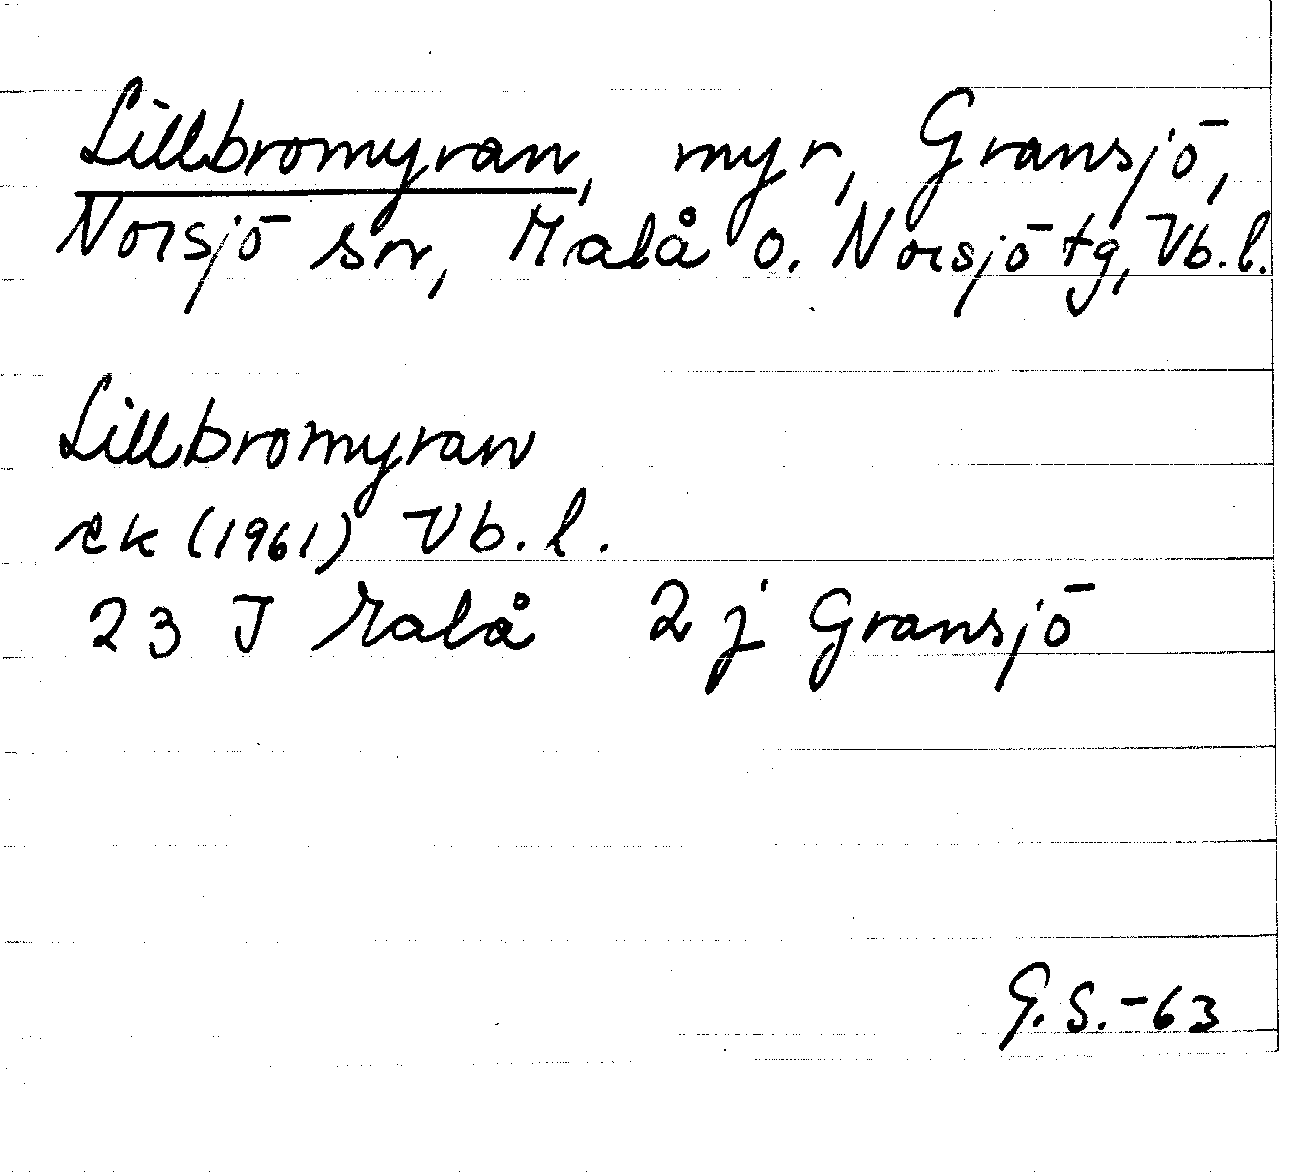 Lillbromyran, myr, Gransjö,
Norsjö sn, Malå o. Norsjö tg, Vb.l.
Lillbromyran
ek (1961) Vb.l.
23 J Malå 2 j Gransjö
G.S.-63